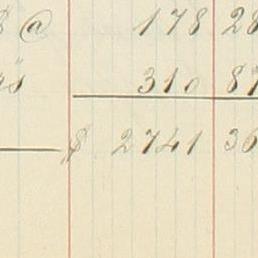 @ 178 28
310 87
$ 2741 36